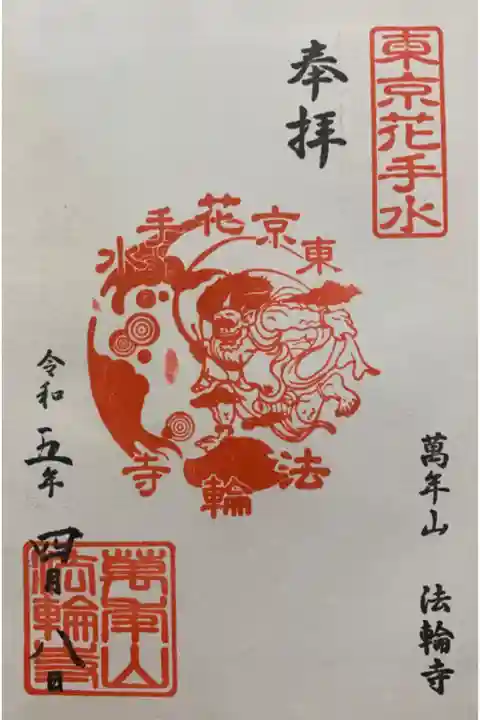 東京花手水
奉拝
東京花手水
法輪寺
萬年山 法輪寺
令和五年四月八日
萬年山
法輪寺